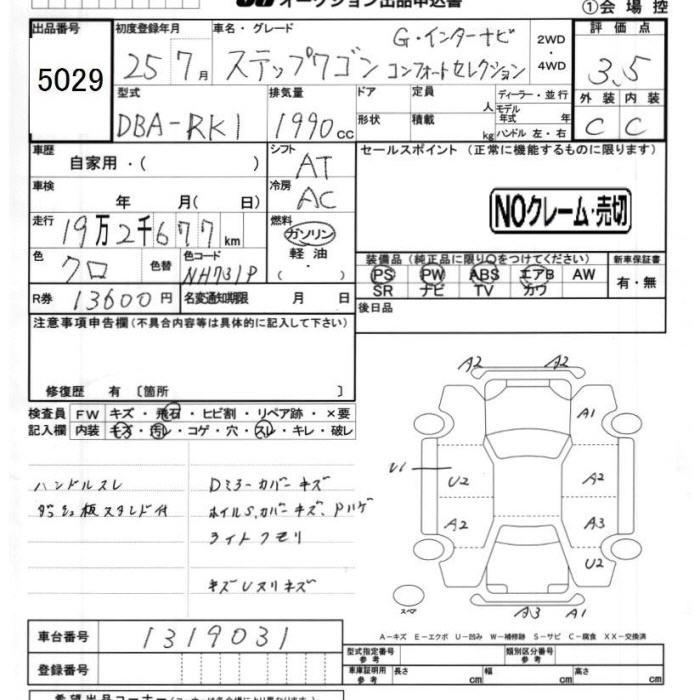 オークション出品申込書
①会場控
出品番号 初度登録年月 車名・グレード 評価点
5029 25 7月 ステップワゴン G・インターナビ コンフォートセレクション 2WD・4WD 3.5
型式 排気量 ドア 定員 人 ディーラー・並行 外装 内装
DBA-RK1 1990cc 形状 積載 kg モデル年式 年 ハンドル 左・右 C C
車歴 シフト セールスポイント (正常に機能するものに限ります)
自家用・( ) AT
車検 冷房
年 月( 日) AC
NOクレーム・売切
走行 燃料
19万2千677km ガソリン
軽油
色 色替 色コード ・( )
クロ NH731P
装備品(純正品に限り○をつけてください) 新車保証書
PS PW ABS エアB AW 有・無
SR ナビ TV カワ
R券 13600円 名変通知期限 月 日 後日品
注意事項申告欄(不具合内容等は具体的に記入して下さい)
修復歴 有 〔箇所 〕
検査員 FW キズ・飛石・ヒビ割・リペア跡・×要
記入欄 内装 キズ・汚レ・コゲ・穴・スレ・キレ・破レ
ハンドルスレ Dミラーカバーキズ
ダッシュ板スタンド付 ホイルS,カバーキズ、Pハゲ
ライトクモリ
キズUヌリキズ
A2 A2
A1
U1
U2 A2
A2 A3
U2
スペア
A3 A1
A-キズ E-エクボ U-凹み W-補修跡 S-サビ C-腐食 XX-交換済
車台番号 1319031
型式指定番号 参考 類別区分番号 参考
登録番号 車庫証明用 参考 長さ cm 幅 cm 高さ cm
希望出品コーナー